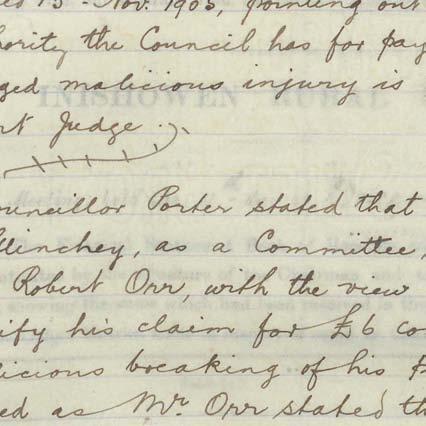 ed 15th Nov. 1905, pointing out
hority the Council has for pay
ged malicious injury is
rt Judge.
INISHOWEN RURAL
ouncillor Porter stated that
linchey, as a Committee,
Robert Orr, with the view
ify his claim for £6 co
licious breaking of his
ed as Mr. Orr stated th